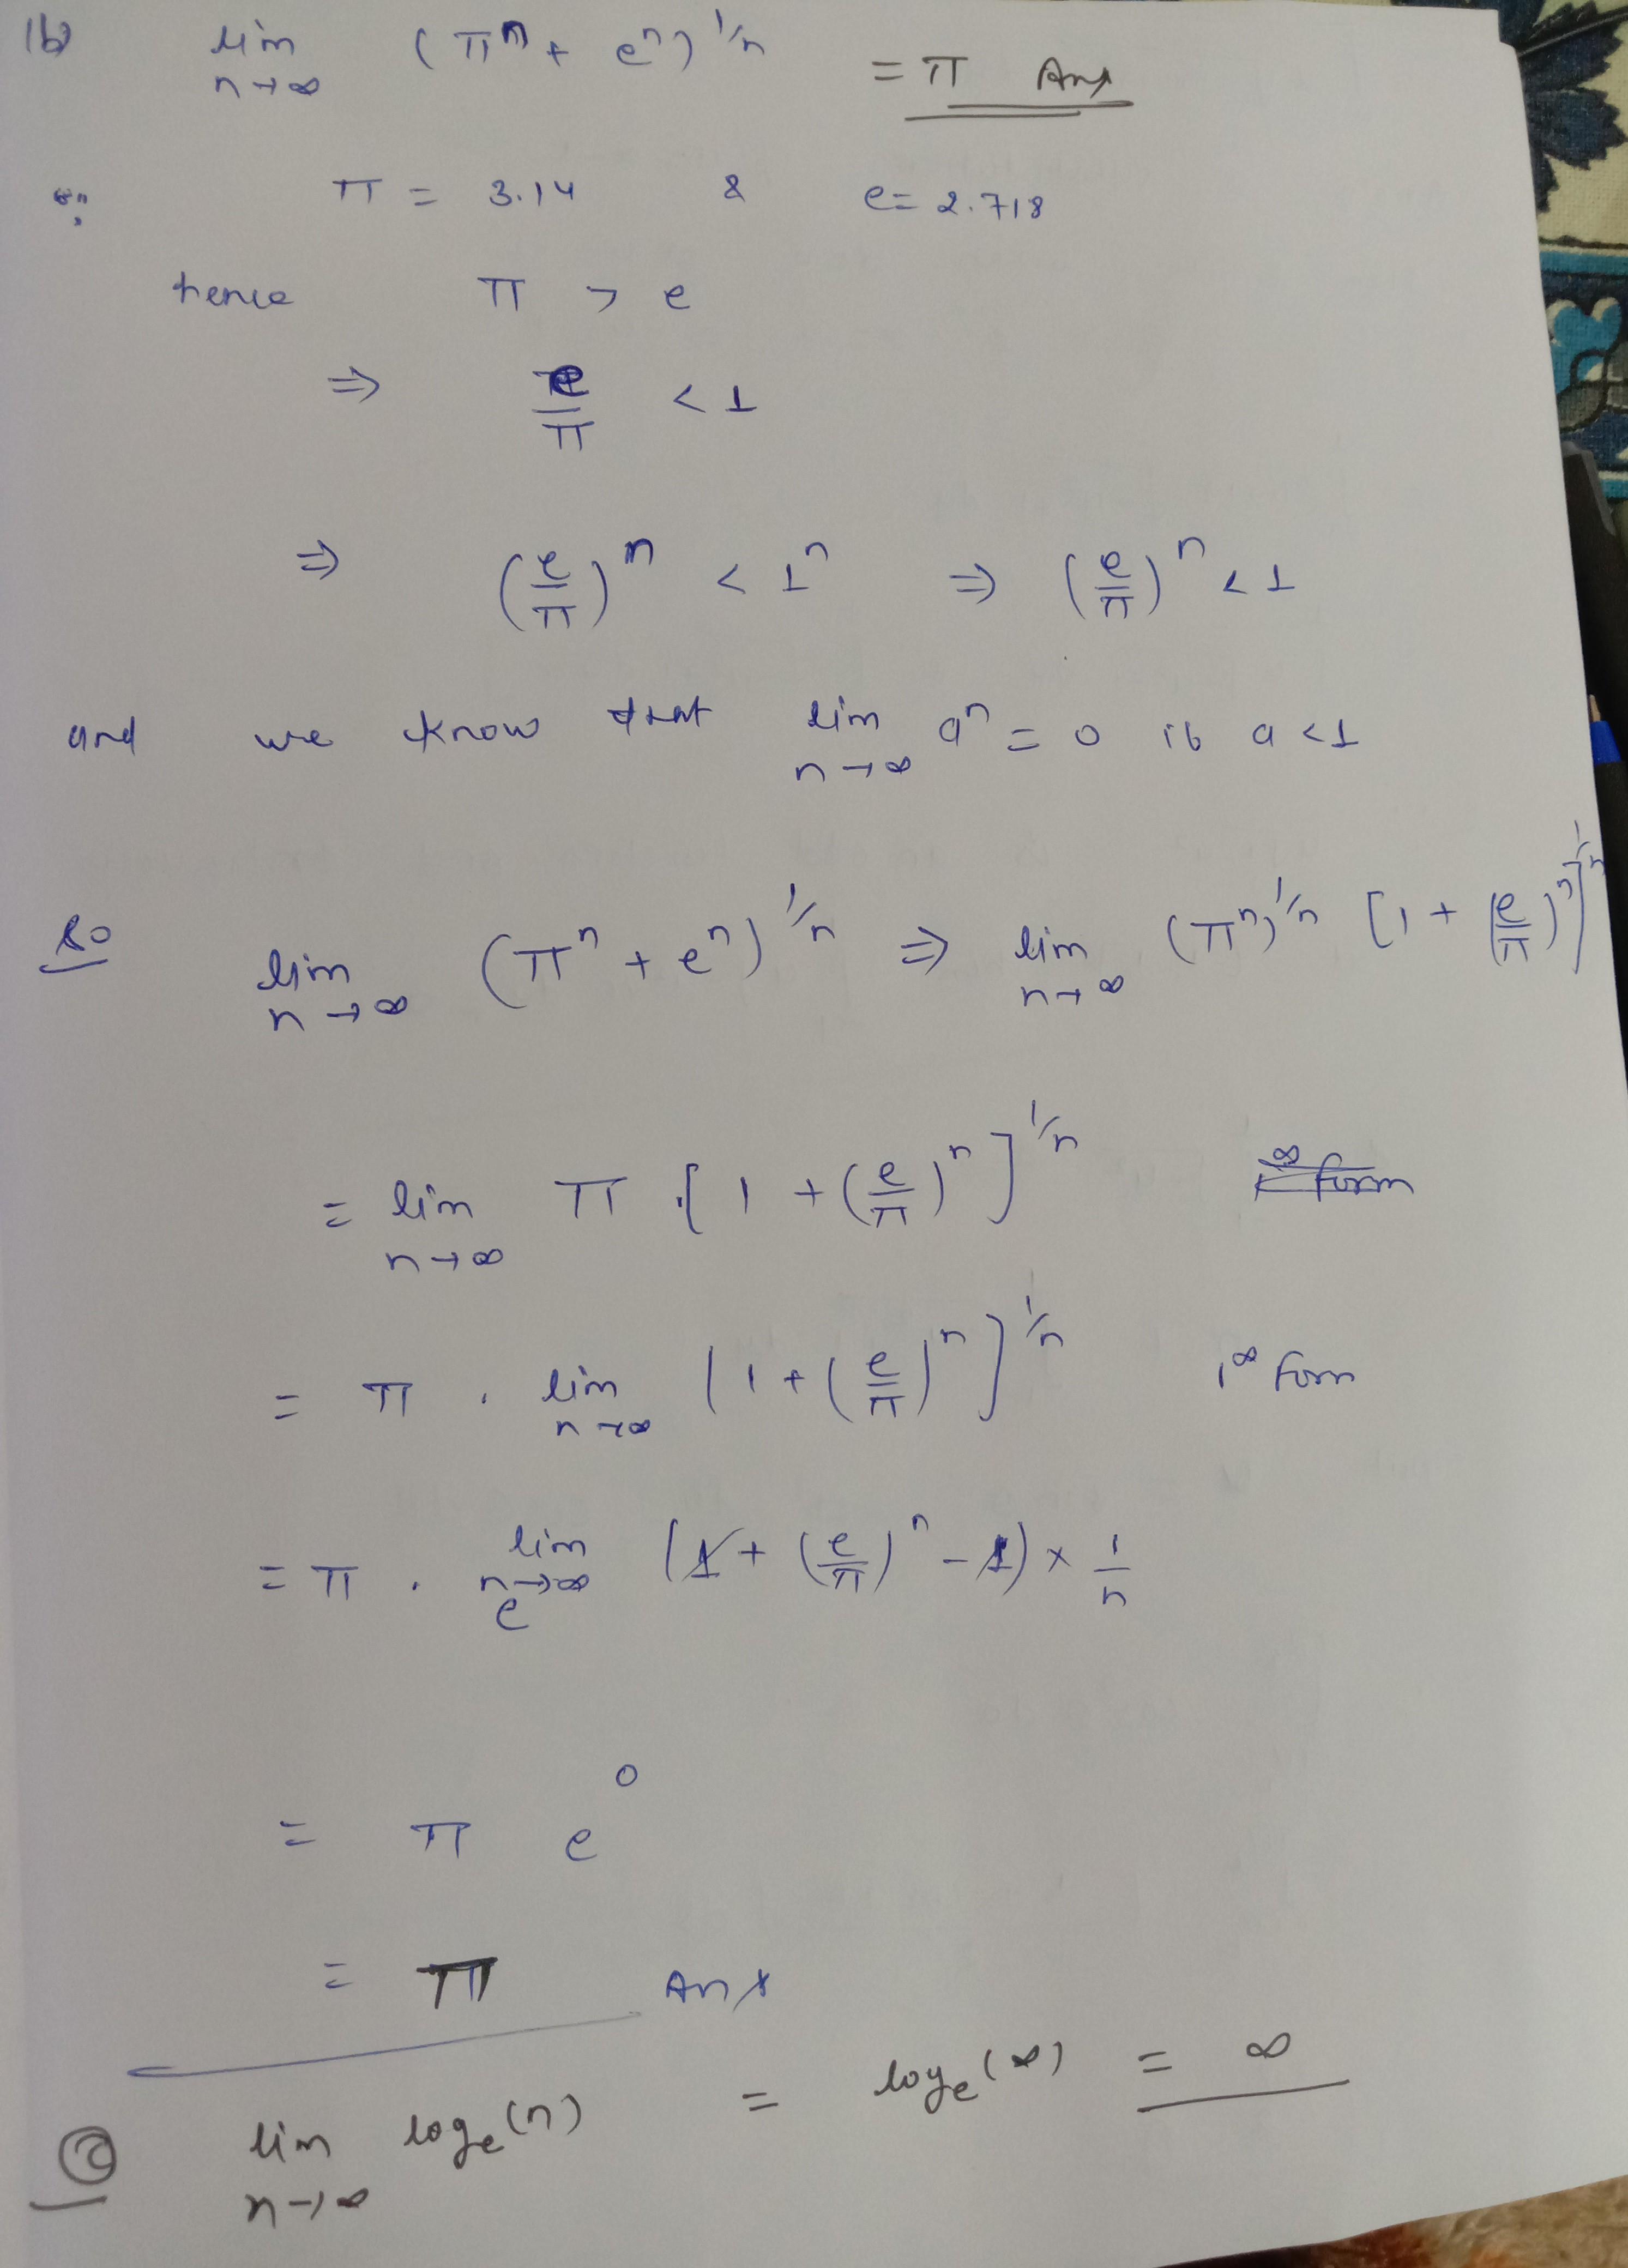 1b) lim n→∞ (πⁿ + eⁿ)^1/n = π Ans
∵ π = 3.14 & e = 2.718
hence π > e
⇒ e/π < 1
⇒ (e/π)ⁿ < 1ⁿ ⇒ (e/π)ⁿ < 1
and we know that lim n→∞ aⁿ = 0 if a < 1
So lim n→∞ (πⁿ + eⁿ)^1/n ⇒ lim n→∞ (πⁿ)^1/n [1 + (e/π)ⁿ]^1/n
= lim n→∞ π · [1 + (e/π)ⁿ]^1/n 1^∞ form
= π · lim n→∞ [1 + (e/π)ⁿ]^1/n 1^∞ form
= π · e^lim n→∞ (1 + (e/π)ⁿ - 1) × 1/n
= π e⁰
= π Ans
© lim n→∞ logₑ(n) = logₑ(∞) = ∞